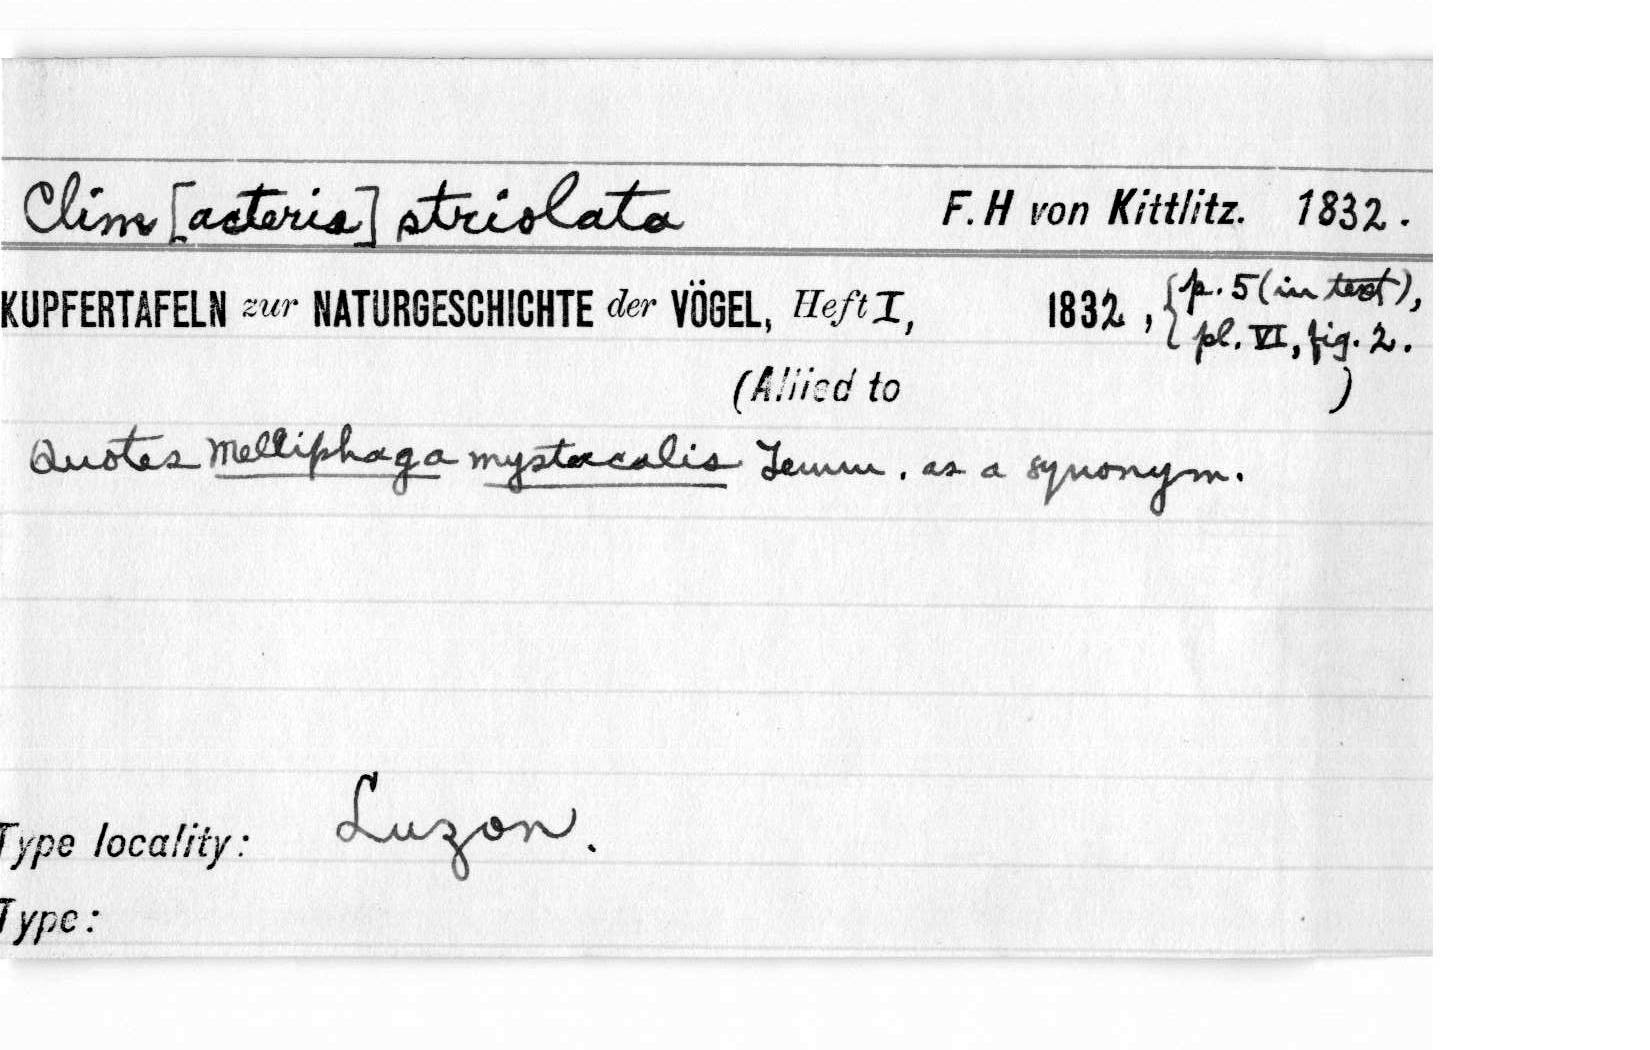 Clim [acteris] striolata F.H von Kittlitz. 1832.
KUPFERTAFELN zur NATURGESCHICHTE der VÖGEL, Heft I, 1832, { p. 5 (in text),
pl. VI, fig. 2.
(Allied to )
Quotes Melliphaga mystacalis Temm. as a synonym.
Type locality: Luzon.
Type: